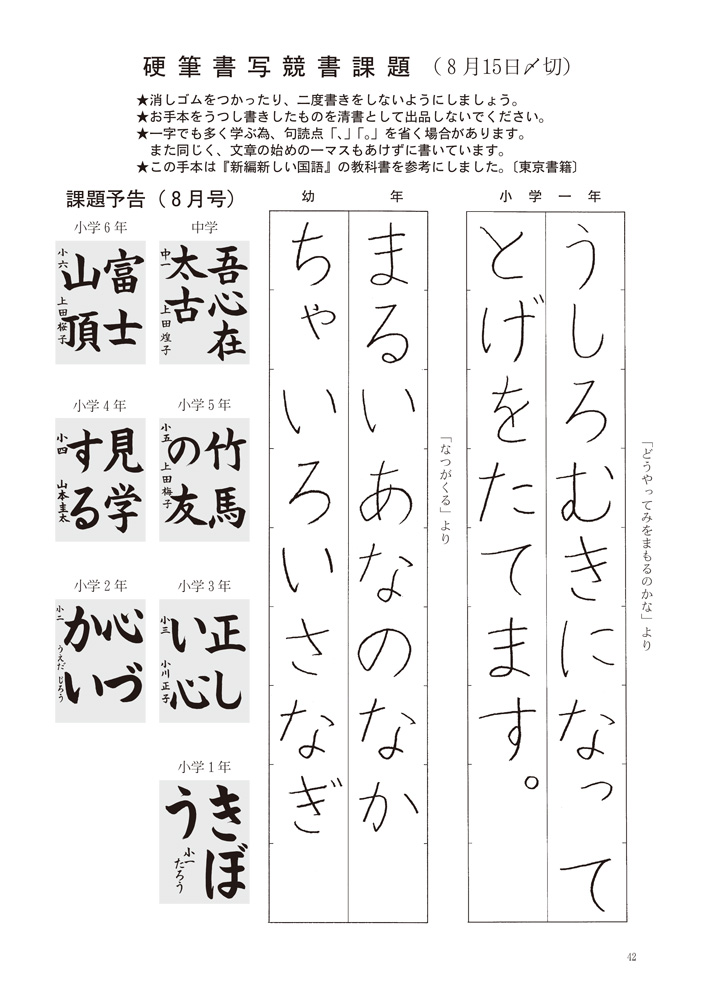 硬筆書写競書課題（8月15日〆切）
★消しゴムをつかったり、二度書きをしないようにしましょう。
★お手本をうつし書きしたものを清書として出品しないでください。
★一字でも多く学ぶ為、句読点「、」「。」を省く場合があります。
また同じく、文章の始めの一マスもあけずに書いています。
★この手本は『新編新しい国語』の教科書を参考にしました。〔東京書籍〕
小学一年
「どうやってみをまもるのかな」より
うしろむきになって
とげをたてます。
幼年
「なつがくる」より
まるいあなのなか
ちゃいろいさなぎ
課題予告（8月号）
中学
吾心在
太古
中一 上田煌子
小学6年
富士
山頂
小六 上田桜子
小学5年
竹馬
の友
小五 上田梅子
小学4年
見学
する
小四 山本圭太
小学3年
正し
い心
小三 小川正子
小学2年
心づ
かい
小二 うえだじろう
小学1年
きぼ
う
小一 たろう
42